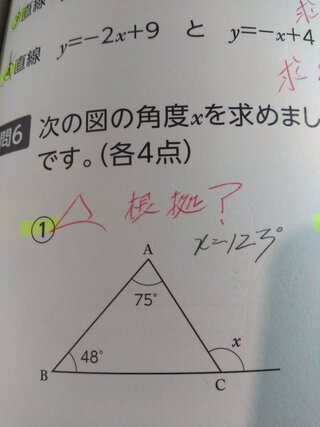 直線 y=-2x+9 と y=-x+4
求
問6 次の図の角度xを求めまし
です。(各4点)
① 根拠?
x=123°
A
75°
48°
x
B
C